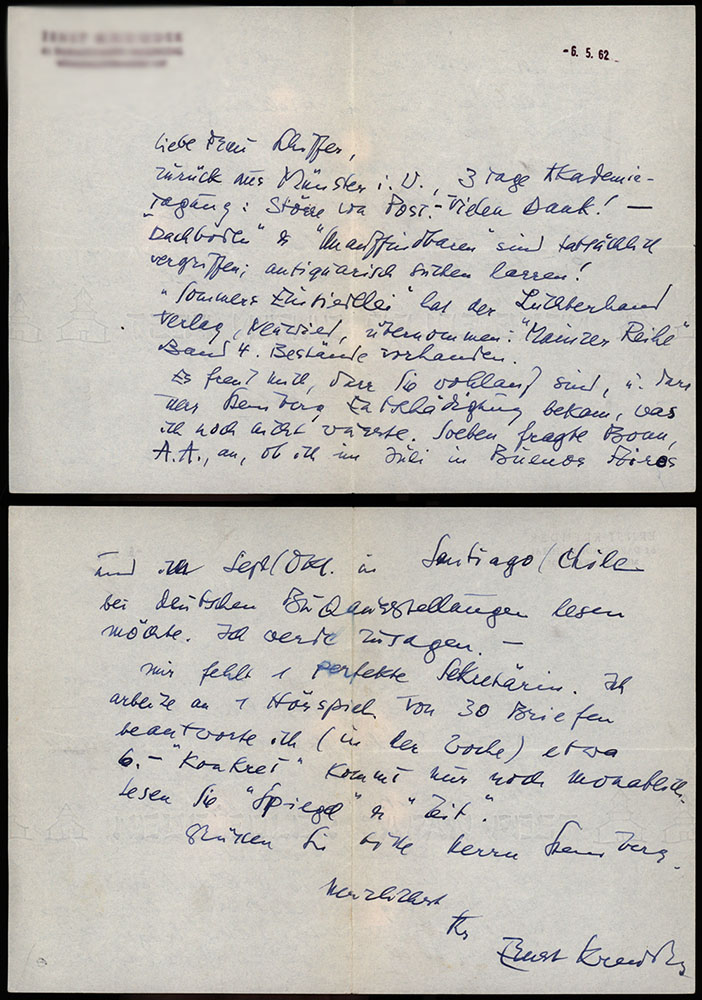 -6. 5. 62
Liebe Frau
zurück aus Münster i. W., 3 Tage Akademie-
Tagung: Stöße von Post. - Vielen Dank! —
"Dachboden" & "Unauffindbaren" sind tatsächlich
vergriffen; antiquarisch suchen lassen!
"Sommers Einsiedelei" hat der Luchterhand
Verlag, Neuwied, übernommen: "Mainzer Reihe"
Band 4. Bestände vorhanden.
Es freut mich, dass Sie wohlauf sind, u. dass
Entschädigung bekam, was
ich noch nicht wusste. Soeben fragte Bonn,
A.A., an, ob ich im Juli in Buenos Aires
und im Sept/Okt. in Santiago/Chile
bei deutschen Buchausstellungen lesen
möchte. Ich werde zusagen. —
Mir fehlt 1 perfekte Sekretärin. Ich
arbeite an 1 Hörspiel. Von 30 Briefen
beantworte ich (in der Woche) etwa
6. - "Konkret" kommt nur noch monatlich.
Lesen Sie "Spiegel" & "Zeit".
Grüßen Sie bitte Herrn
Herzlichst
Ihr
Ernst Kreuder